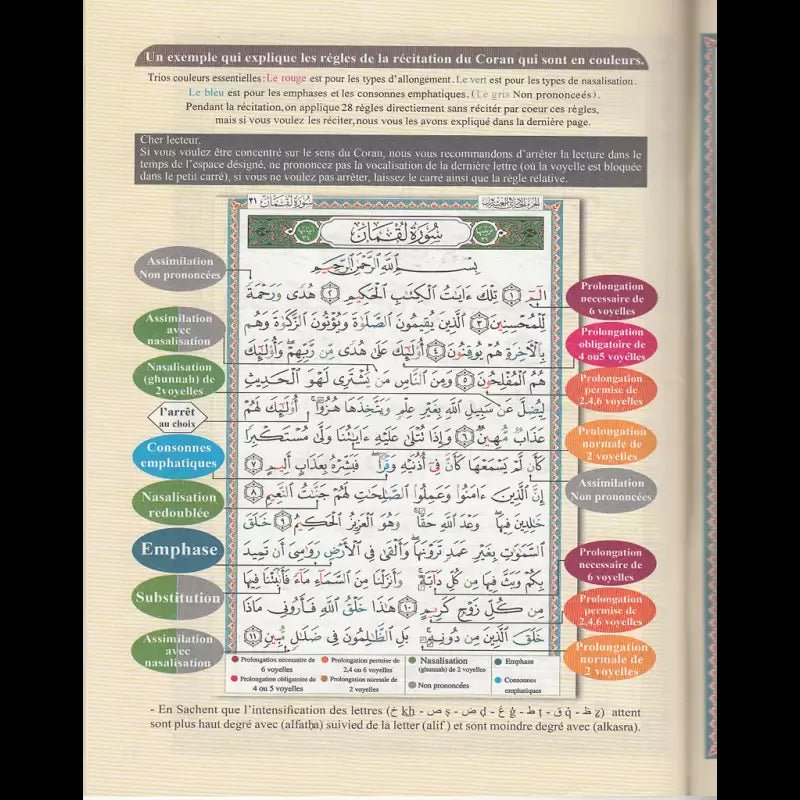 Un exemple qui explique les régles de la récitation du Coran qui sont en couleurs.
Trios couleurs essentielles: Le rouge est pour les types d'allongement. Le vert est pour les types de nasalisation.
Le bleu est pour les emphases et les consonnes emphatiques. (Le gris Non prononceés).
Pendant la récitation, on applique 28 règles directement sans réciter par coeur ces règles,
mais si vous voulez les réciter, nous vous les avons expliqué dans la dernière page.
Cher lecteur,
Si vous voulez être concentré sur le sens du Coran, nous vous recommandons d'arrêter la lecture dans le
temps de l'espace désigné, ne prononcez pas la vocalisation de la dernière lettre (où la voyelle est bloquée
dans le petit carré), si vous ne voulez pas arrêter, laissez le carré ainsi que la règle relative.
سُورَةُ لُقْمَان ٣١
سُورَةُ لُقْمَان
بِسْمِ ٱللَّهِ ٱلرَّحْمَٰنِ ٱلرَّحِيمِ
الٓمٓ ١ تِلْكَ ءَايَٰتُ ٱلْكِتَٰبِ ٱلْحَكِيمِ ٢ هُدًى وَرَحْمَةً
لِّلْمُحْسِنِينَ ٣ ٱلَّذِينَ يُقِيمُونَ ٱلصَّلَوٰةَ وَيُؤْتُونَ ٱلزَّكَوٰةَ وَهُم
بِٱلْءَاخِرَةِ هُمْ يُوقِنُونَ ٤ أُو۟لَٰٓئِكَ عَلَىٰ هُدًى مِّن رَّبِّهِمْ ۖ وَأُو۟لَٰٓئِكَ
هُمُ ٱلْمُفْلِحُونَ ٥ وَمِنَ ٱلنَّاسِ مَن يَشْتَرِى لَهْوَ ٱلْحَدِيثِ
لِيُضِلَّ عَن سَبِيلِ ٱللَّهِ بِغَيْرِ عِلْمٍ وَيَتَّخِذَهَا هُزُوًا ۚ أُو۟لَٰٓئِكَ لَهُمْ
عَذَابٌ مُّهِينٌ ٦ وَإِذَا تُتْلَىٰ عَلَيْهِ ءَايَٰتُنَا وَلَّىٰ مُسْتَكْبِرًا
كَأَن لَّمْ يَسْمَعْهَا كَأَنَّ فِىٓ أُذُنَيْهِ وَقْرًا ۖ فَبَشِّرْهُ بِعَذَابٍ أَلِيمٍ ٧
إِنَّ ٱلَّذِينَ ءَامَنُوا۟ وَعَمِلُوا۟ ٱلصَّٰلِحَٰتِ لَهُمْ جَنَّٰتُ ٱلنَّعِيمِ ٨
خَٰلِدِينَ فِيهَا ۖ وَعْدَ ٱللَّهِ حَقًّا ۚ وَهُوَ ٱلْعَزِيزُ ٱلْحَكِيمُ ٩ خَلَقَ
ٱلسَّمَٰوَٰتِ بِغَيْرِ عَمَدٍ تَرَوْنَهَا ۖ وَأَلْقَىٰ فِى ٱلْأَرْضِ رَوَٰسِىَ أَن تَمِيدَ
بِكُمْ وَبَثَّ فِيهَا مِن كُلِّ دَآبَّةٍ ۚ وَأَنزَلْنَا مِنَ ٱلسَّمَآءِ مَآءً فَأَنۢبَتْنَا فِيهَا
مِن كُلِّ زَوْجٍ كَرِيمٍ ١٠ هَٰذَا خَلْقُ ٱللَّهِ فَأَرُونِى مَاذَا
خَلَقَ ٱلَّذِينَ مِن دُونِهِۦ ۚ بَلِ ٱلظَّٰلِمُونَ فِى ضَلَٰلٍ مُّبِينٍ ١١
Assimilation
Non prononcées
Assimilation
avec
nasalisation
Nasalisation
(ghunnah) de
2voyelles
l'arrêt
au choix
Consonnes
emphatiques
Nasalisation
redoublée
Emphase
Substitution
Assimilation
avec
nasalisation
Prolongation
necessaire de
6 voyelles
Prolongation
obligatoire de
4 ou5 voyelles
Prolongation
permise de
2,4,6 voyelles
Prolongation
normale de
2 voyelles
Assimilation
Non prononcées
Prolongation
necessaire de
6 voyelles
Prolongation
permise de
2,4,6 voyelles
Prolongation
normale de
2 voyelles
Prolongation necessaire de
6 voyelles
Prolongation permise de
2,4 ou 6 voyelles
Nasalisation
(ghunnah) de 2 voyelles
Emphase
Prolongation obligatoire de
4 ou 5 voyelles
Prolongation normale de
2 voyelles
Non prononcées
Consonnes
emphatiques
- En Sachent que l'intensification des lettres (خ kh - ص ṣ - ض ḍ - غ ġ - ط ṭ - ق q̂ - ظ ẓ) attent
sont plus haut degré avec (alfatḥa) suivied de la letter (alif) et sont moindre degré avec (alkasra).